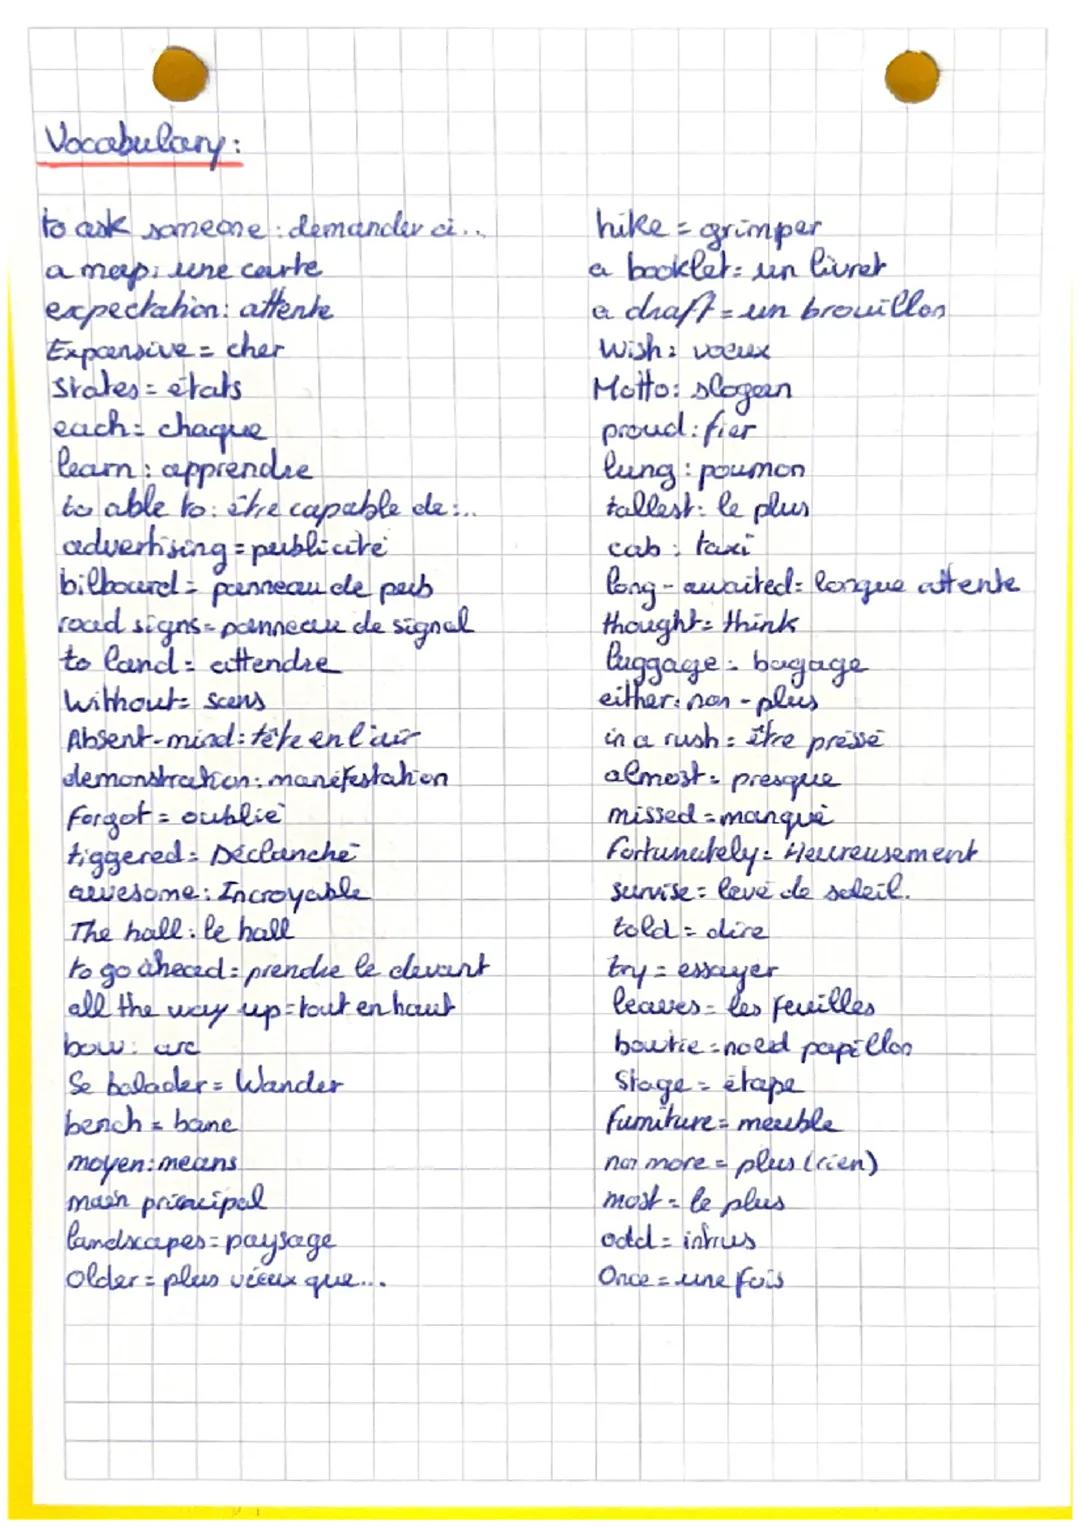 Vocabulary:
to ask someone : demander à...
a map: une carte
expectation: attente
Expansive = cher
States = états
each: chaque
learn : apprendre
to able to: être capable de:...
advertising = publicité
bilboard = panneau de pub
road signs = panneau de signal
to land = attendre
Without = sans
Absent-mind: tête en l'air
demonstration: manifestation
forgot = oublié
tiggered = Déclanché
awesome: Incroyable
The hall: le hall
to go ahead = prendre le devant
all the way up = tout en haut
bow: arc
Se balader = Wander
bench = banc
moyen: means
main principal
landscapes = paysage
Older = plus vieux que...
hike = grimper
a booklet: un livret
a draft = un brouillon
Wish: voeux
Motto: slogan
proud: fier
lung: poumon
tallest: le plus
cab: taxi
long-awaited: longue attente
thought: think
luggage = bagage
either: non-plus
in a rush = être pressé
almost = presque
missed = manqué
Fortunately = Heureusement
sunrise = levé de soleil.
told = dire
try = essayer
leaves = les feuilles
bowtie = noeud papillon
Stage = étape
furniture = meuble
no more = plus (rien)
most = le plus
odd = intrus
Once = une fois